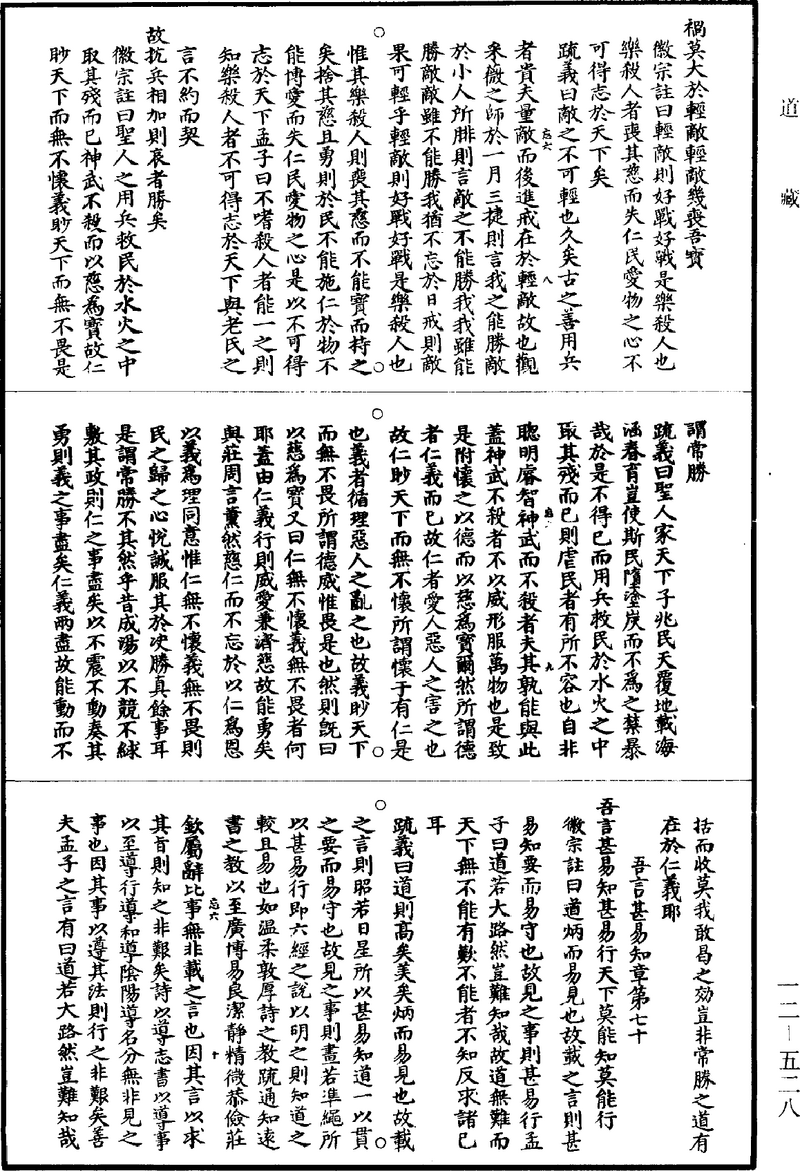 道藏
一二-五二八
禍莫大於輕敵輕敵幾喪吾寶
徽宗註曰輕敵則好戰好戰是樂殺人也
樂殺人者喪其慈而失仁民愛物之心不
可得志於天下矣
疏義曰敵之不可輕也久矣古之善用兵
者貴夫量敵而後進戒在於輕敵故也觀
采薇之師於一月三捷則言我之能勝敵
於小人所腓則言敵之不能勝我我雖能
勝敵敵雖不能勝我猶不忘於日戒則敵
果可輕乎輕敵則好戰好戰是樂殺人也
惟其樂殺人則喪其慈而不能寶而持之
矣捨其慈且勇則於民不能施仁於物不
能博愛而失仁民愛物之心是以不可得
志於天下孟子曰不嗜殺人者能一之則
知樂殺人者不可得志於天下與老氏之
言不約而契
故抗兵相加則哀者勝矣
徽宗註曰聖人之用兵救民於水火之中
取其殘而已神武不殺而以慈為寶故仁
眇天下而無不懷義眇天下而無不畏是
謂常勝
疏義曰聖人家天下子兆民天覆地載海
涵春育豈使斯民墮塗炭而不為之禁暴
哉於是不得已而用兵救民於水火之中
取其殘而已則虐民者有所不容也自非
聰明睿智神武而不殺者夫其孰能與此
蓋神武不殺者不以威形服萬物也是致
是附懷之以德而以慈為寶爾然所謂德
者仁義而已故仁者愛人惡人之害之也
故仁眇天下而無不懷所謂懷于有仁是
也義者循理惡人之亂之也故義眇天下
而無不畏所謂德威惟畏是也然則旣曰
以慈為寶又曰仁無不懷義無不畏者何
耶蓋由仁義行則威愛兼濟慈故能勇矣
與莊周言薰然慈仁而不忘於以仁為恩
以義為理同意惟仁無不懷義無不畏則
民之歸之心悅誠服其於决勝真餘事耳
是謂常勝不其然乎昔成湯以不競不絿
敷其政則仁之事盡矣以不震不動奏其
勇則義之事盡矣仁義兩盡故能動而不
括而收莫我敢曷之効豈非常勝之道有
在於仁義耶
吾言甚易知章第七十
吾言甚易知甚易行天下莫能知莫能行
徽宗註曰道炳而易見也故載之言則甚
易知要而易守也故見之事則甚易行孟
子曰道若大路然豈難知哉故道無難而
天下無不能有歎不能者不知反求諸己
耳
疏義曰道則高矣美矣炳而易見也故載
之言則昭若日星所以甚易知道一以貫
之要而易守也故見之事則畫若準繩所
以甚易行即六經之說以明之則知道之
較且易也如溫柔敦厚詩之教疏通知遠
書之教以至廣博易良潔靜精微恭儉莊
欽屬辭比事無非載之言也因其言以求
其旨則知之非艱矣詩以導志書以導事
以至導行導和導陰陽導名分無非見之
事也因其事以遵其法則行之非艱矣善
夫孟子之言有曰道若大路然豈難知哉
忘六
八
九
忘六
十